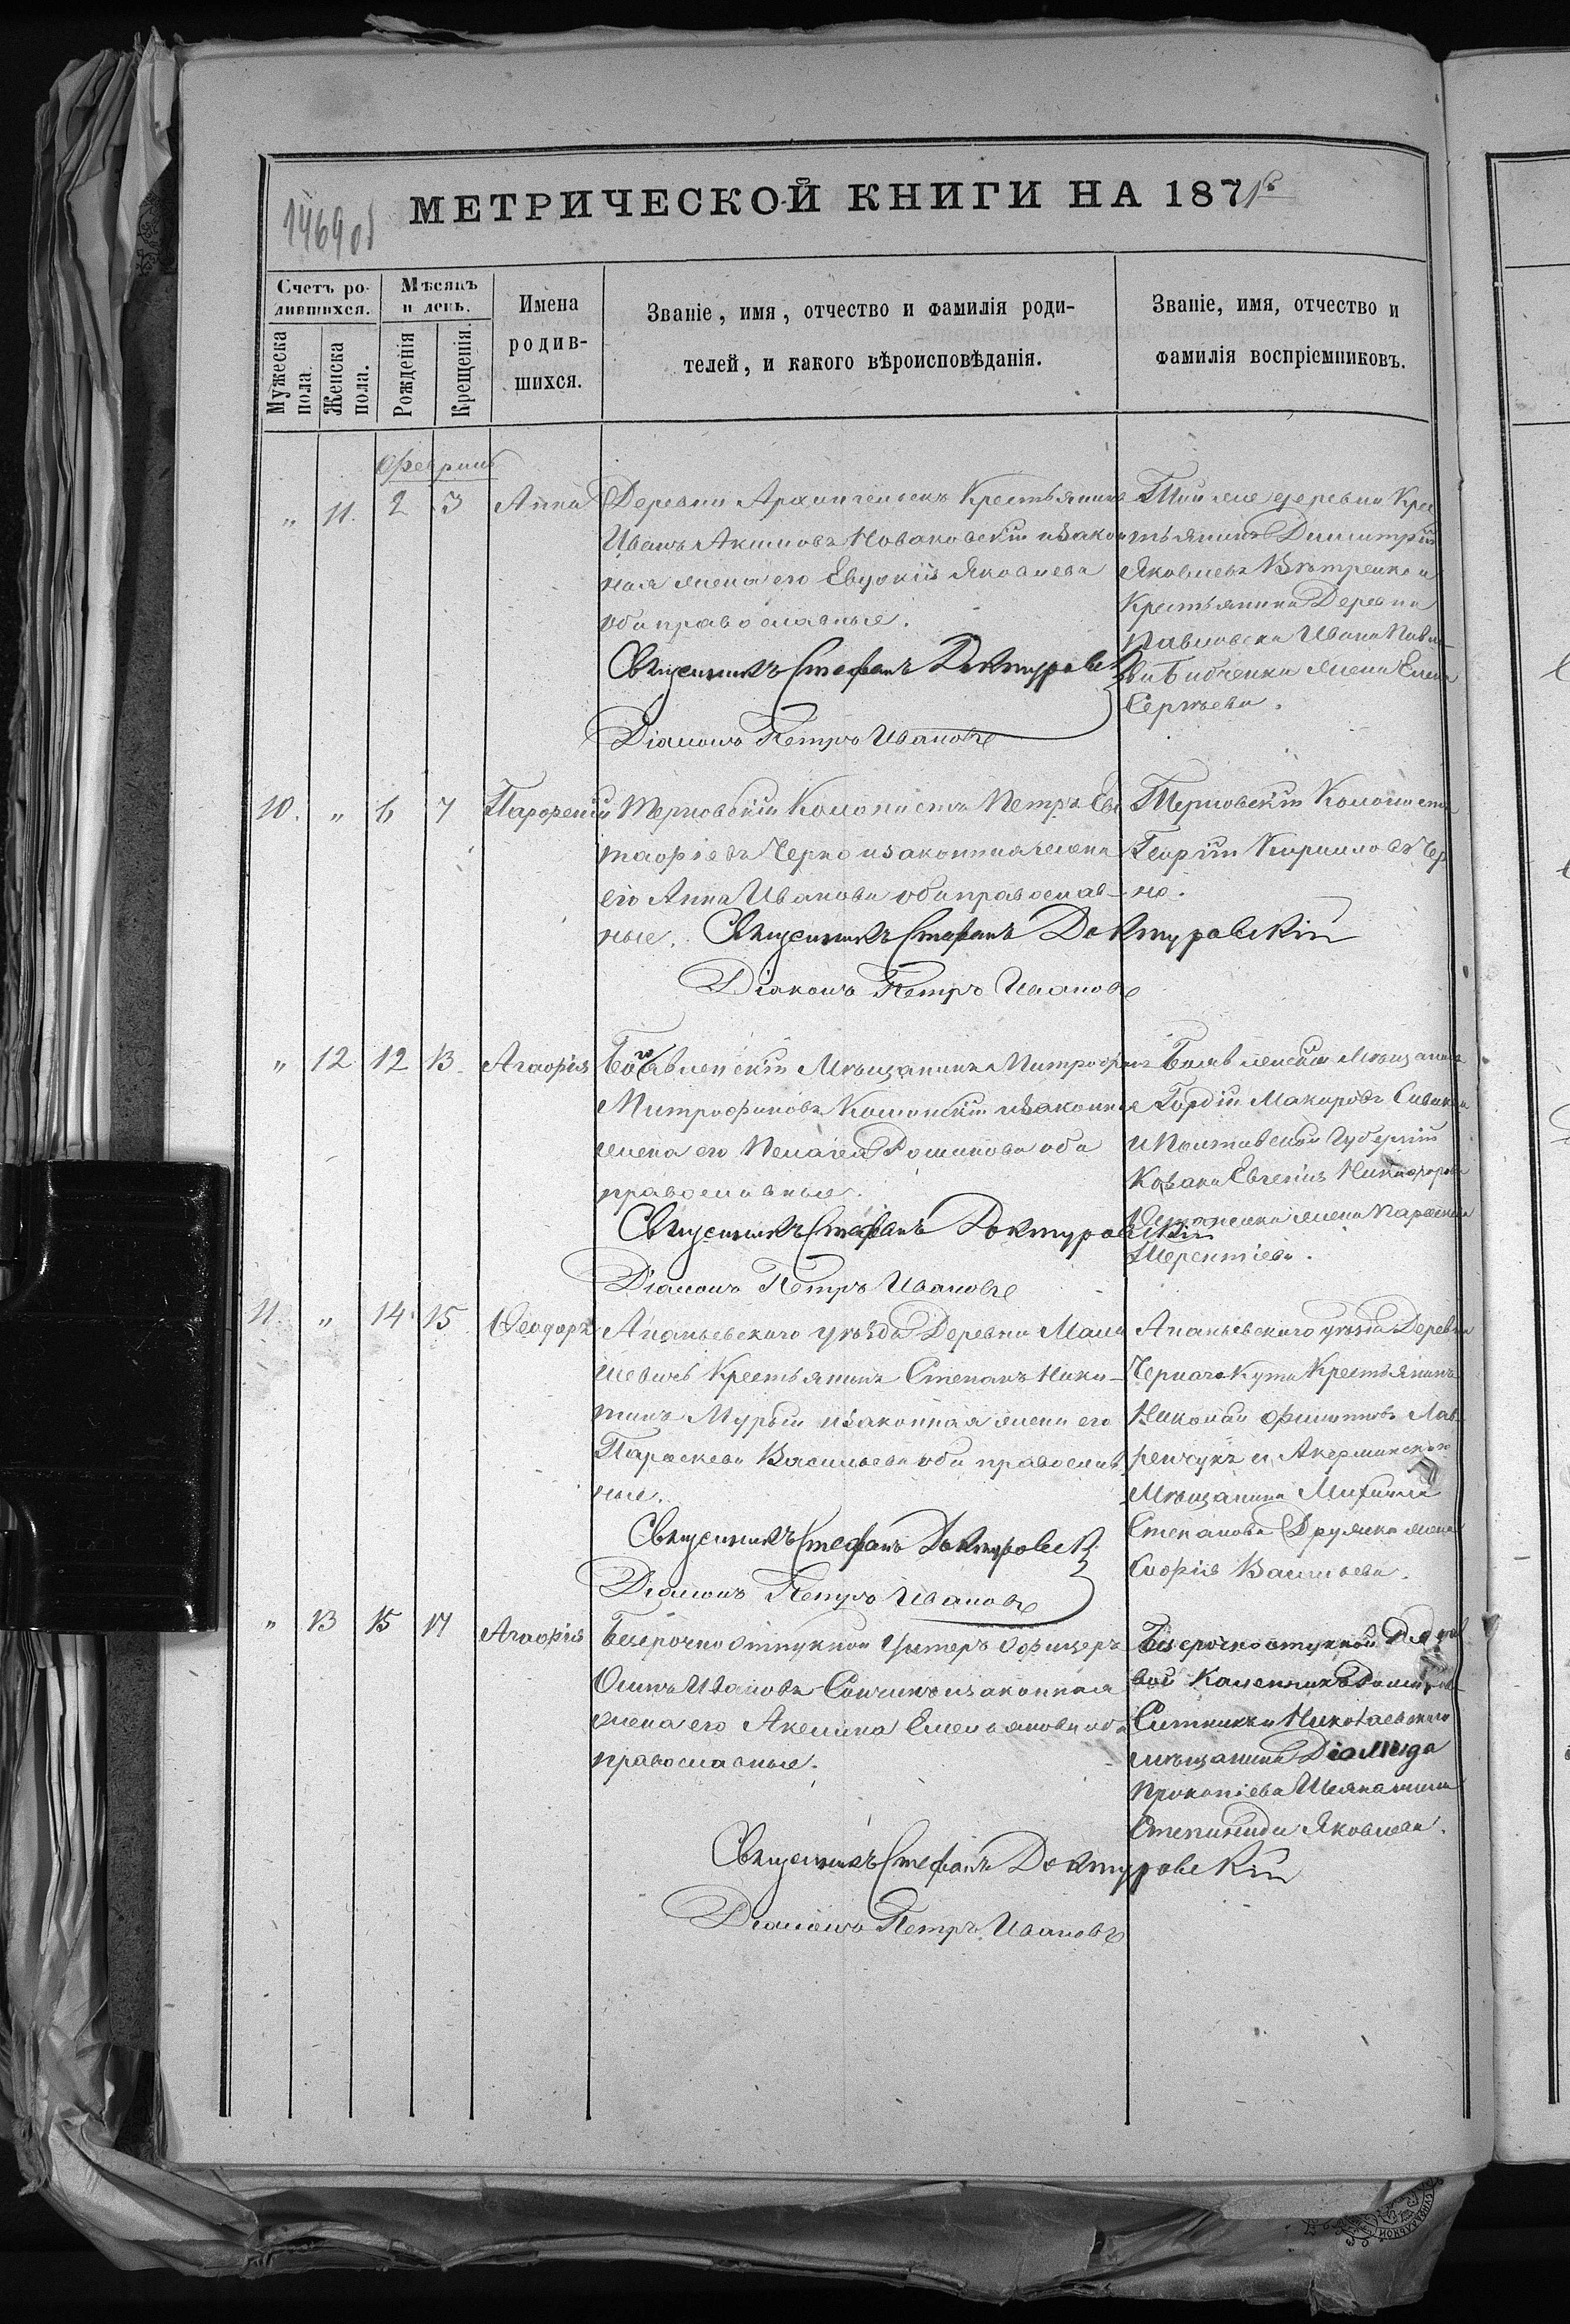 1469 об
МЕТРИЧЕСКОЙ КНИГИ НА 1871
Счетъ ро-
дившихся.
Мужеска пола.
Женска пола.
Мѣсяцъ
и день.
Рожденія
Крещенія.
Имена
родив-
шихся.
Званіе, имя, отчество и фамилія роди-
телей, и какого вѣроисповѣданія.
Званіе, имя, отчество и
фамилія воспріемниковъ.
Февраль
" 11. 2 3 Анна
Деревни Архангельск Крестьянинъ
Иванъ Акимовъ Новаковскій и закон
ная жена его Евдокія Яковлева
оба православные.
Священникъ Стефанъ Доктуровск
Діаконъ Петръ Ивановъ
Той же деревни Крес
тьянинъ Димитрій
Яковлевъ Вѣтренко и
Крестьянина Деревни
Павловки Ивана Павло
ва жена Елена
Сергѣева.
10. " 6 7 Парфеній
Терновскій Колонистъ Петръ Ев
тафіевъ Черно и законная жена
его Анна Иванова оба православ-
ные.
Священникъ Стефанъ Доктуровскій
Діаконъ Петръ Ивановъ
Терновскій Колонистъ
Георгій Кирилловъ Чер
но.
" 12 12 13 Агафія
Богоявленскій Мѣщанинъ Митрофанъ
Митрофановъ и законная
жена его Пелагея Романова оба
православные.
Священникъ Стефанъ Доктуровскій
Діаконъ Петръ Ивановъ
Богоявленскій Мѣщанинъ
Гордій Макаровъ
и Полтавской Губерніи
Козака Евгенія Никифорова
жена Параскева
Терентіева.
11. " 14 15 Ѳеодоръ
Ананьевскаго уѣзда Деревни Мала
шевичъ Крестьянинъ Степанъ Ники-
тинъ Мурый и законная жена его
Параскева Васильева оба православ
ные.
Священникъ Стефанъ Доктуровск
Діаконъ Петръ Ивановъ
Ананьевскаго уѣзда Деревни
Чернаго Кута Крестьянинъ
Николай Филиповъ Лав
ренчукъ и Акерманскаго
Мѣщанина Михаила
Степанова жена
Софія Васильева.
" 13 15 17 Агафія
Безсрочно отпускной Унтеръ Офицеръ
Осипъ Ивановъ и законная
жена его Акелина Емельянова оба
православные.
Священникъ Стефанъ Доктуровскій
Діаконъ Петръ Ивановъ
Безсрочно отпускной Рядо
вой
Ситникъ и Николаевскаго
мѣщанина Діомида
Прокопіева жена
Степанида Яковлева.